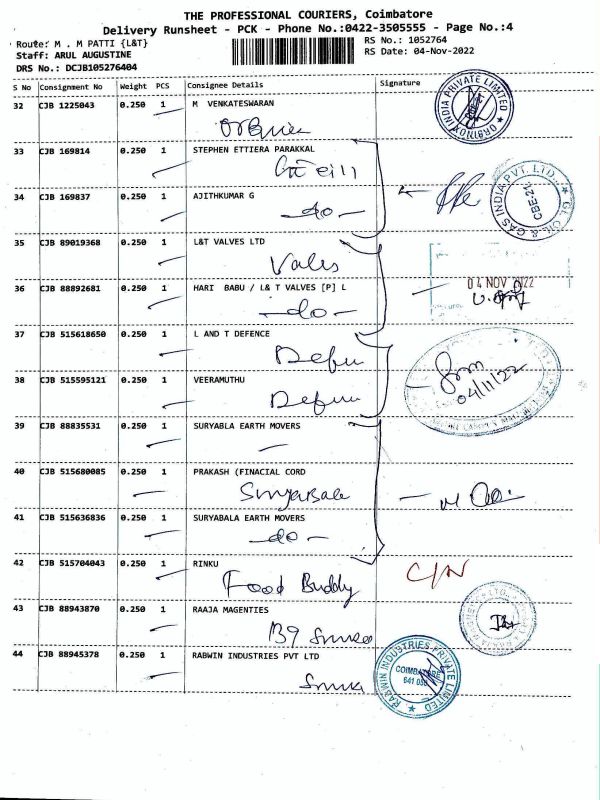 THE PROFESSIONAL COURIERS, Coimbatore
Delivery Runsheet - PCK - Phone No.:0422-3505555 - Page No.:4
Route: M . M PATTI {L&T}
RS No.: 1052764
Staff: ARUL AUGUSTINE
RS Date: 04-Nov-2022
DRS No.: DCJB105276404
S No Consignment No Weight PCS Consignee Details Signature
32 CJB 1225043 0.250 1 M VENKATESWARAN
33 CJB 169814 0.250 1 STEPHEN ETTIERA PARAKKAL
34 CJB 169837 0.250 1 AJITHKUMAR G
-do-
CBE-21
35 CJB 89019368 0.250 1 L&T VALVES LTD
Valves
36 CJB 88892681 0.250 1 HARI BABU / L& T VALVES [P] L
04 NOV 2022
-do-
37 CJB 515618650 0.250 1 L AND T DEFENCE
04/11/22
38 CJB 515595121 0.250 1 VEERAMUTHU
39 CJB 88835531 0.250 1 SURYABLA EARTH MOVERS
40 CJB 515680085 0.250 1 PRAKASH (FINACIAL CORD
41 CJB 515636836 0.250 1 SURYABALA EARTH MOVERS
-do-
42 CJB 515704043 0.250 1 RINKU
Food Buddy
C/N
43 CJB 88943870 0.250 1 RAAJA MAGENTIES
44 CJB 88945378 0.250 1 RABWIN INDUSTRIES PVT LTD
RABWIN INDUSTRIES PRIVATE LIMITED
COIMBATORE